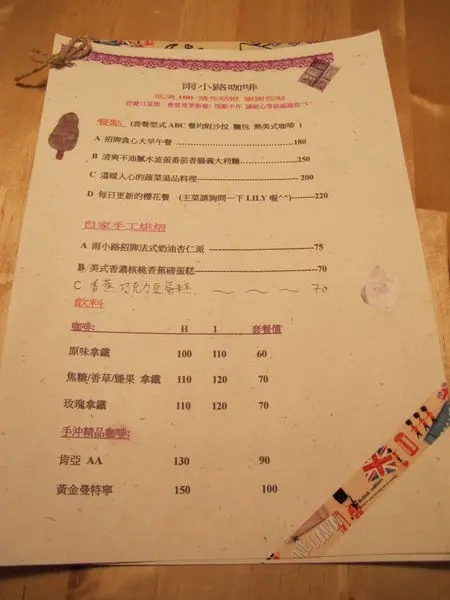 雨小路咖啡
低消 100 請先結帳 謝謝您呦
餐點 (套餐型式 ABC 餐均附沙拉 麵包 熱美式咖啡 )
A 招牌貪心大早午餐 180
B 清爽不油膩水波蛋番茄香腸義大利麵 250
C 溫暖人心的蔬菜湯品料理 200
D 每日更新的櫻花餐 (主菜請詢問一下 LILY 喔^^) 220
自家手工烘焙
A 雨小路招牌法式奶油杏仁派 75
B 美式香濃核桃香蕉磅蛋糕 70
C 香蕉巧克力豆蛋糕 ～ ～ ～ 70
飲料
咖啡: H I 套餐價
原味拿鐵 100 110 60
焦糖/香草/臻果 拿鐵 110 120 70
玫瑰拿鐵 110 120 70
手沖精品咖啡:
肯亞 AA 130 90
黃金曼特寧 150 100